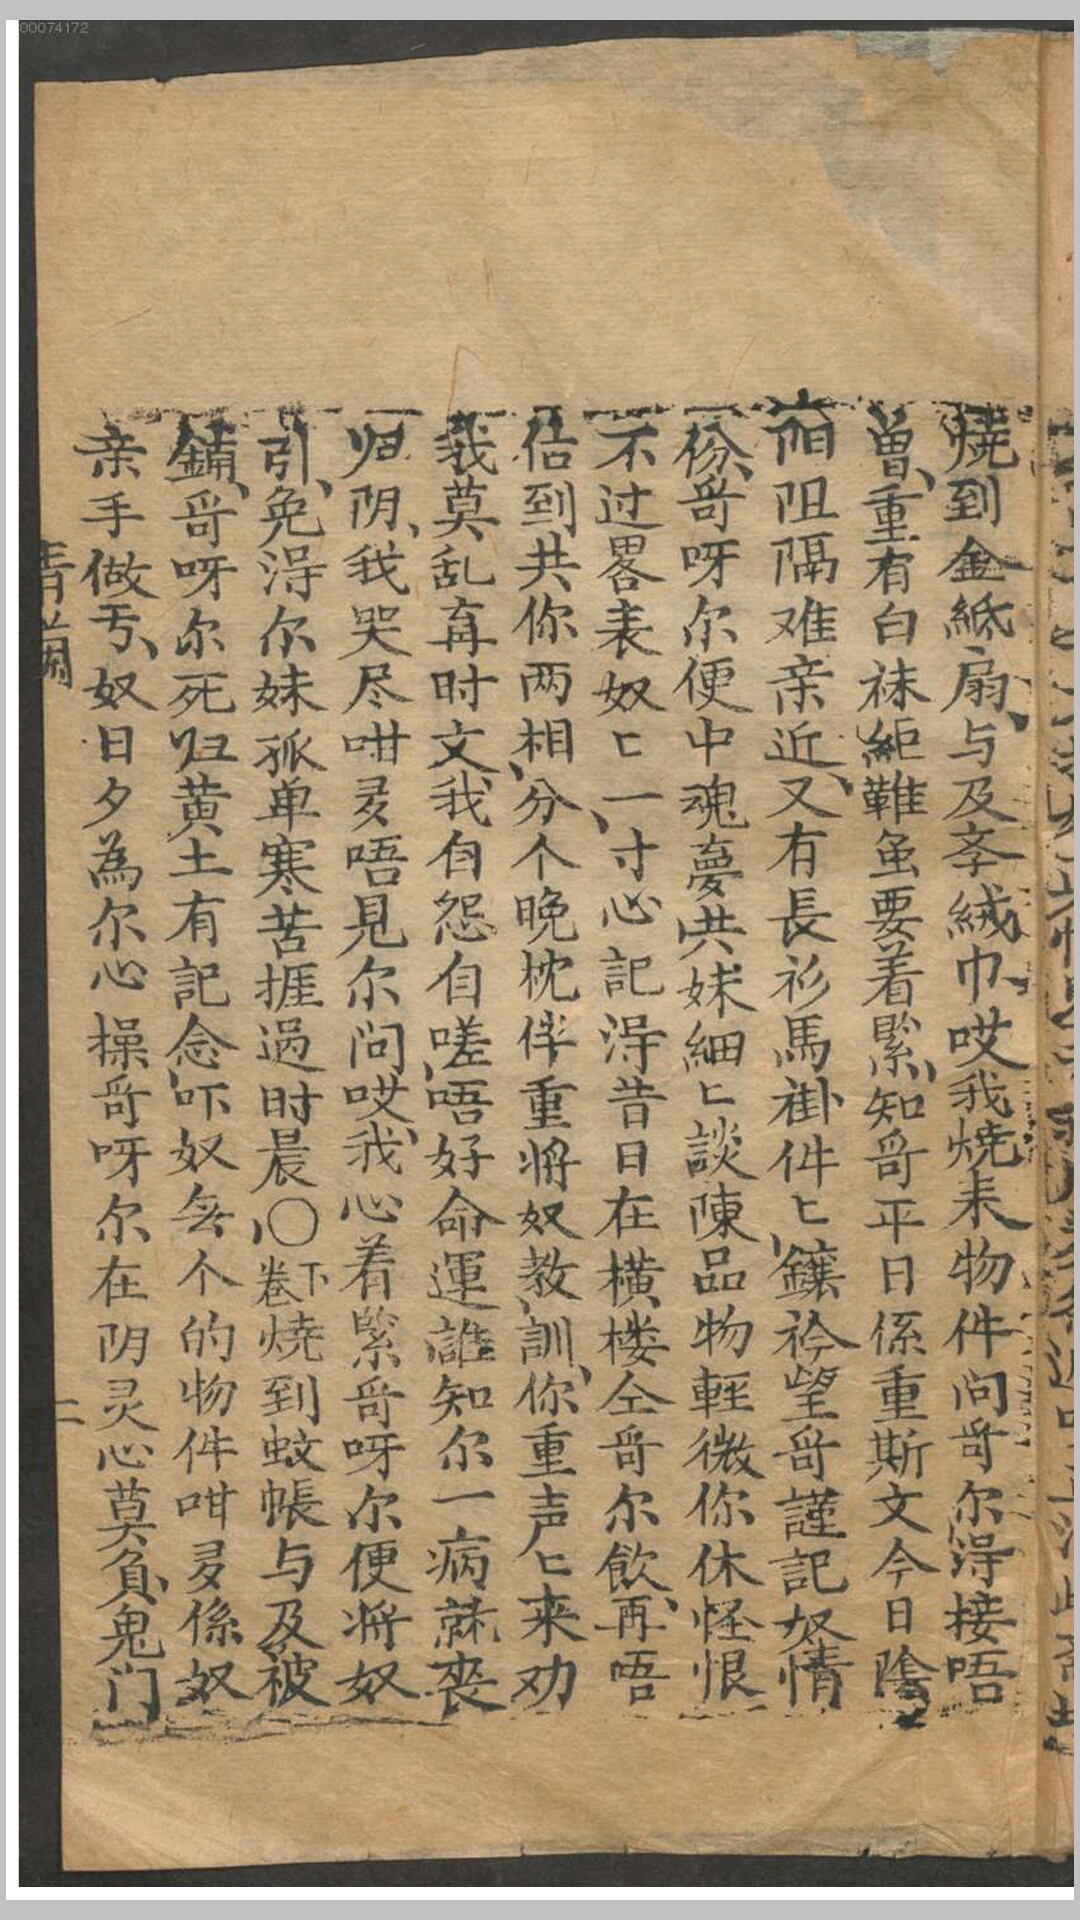 00074172
焼到金紙扇、与及孝絨巾、哎我焼来物件问哥尔淂接唔
曾、重有白袜絔鞋虽要着緊、知哥平日係重斯文今日陰
阳阻隔难亲近、又有長衫馬褂件匕、鑲衿望哥謹記奴情
份、哥呀尔便中魂夢共妹細匕談陳品物輕微你休怪恨
不过畧表奴匕一、寸心記淂昔日在橫楼仝哥尔飲、再唔
估到共你两相、分个晚枕伴重将奴教、訓、你重声匕来劝
我莫乱弃时文、我自怨自嗟、唔好命運誰知尔一病就丧
归阴、我哭尽咁多唔見尔问哎、我心着緊哥呀尔便将奴
引、免淂尔妹孤单寒苦捱過时晨、〇下卷焼到蚊帳与及被
鋪、哥呀尔死归黄土有記念、吓奴每个的物件咁多係奴
亲手做丐、奴日夕為尔心操哥呀尔在阴灵心莫負、鬼门
青蘭
二